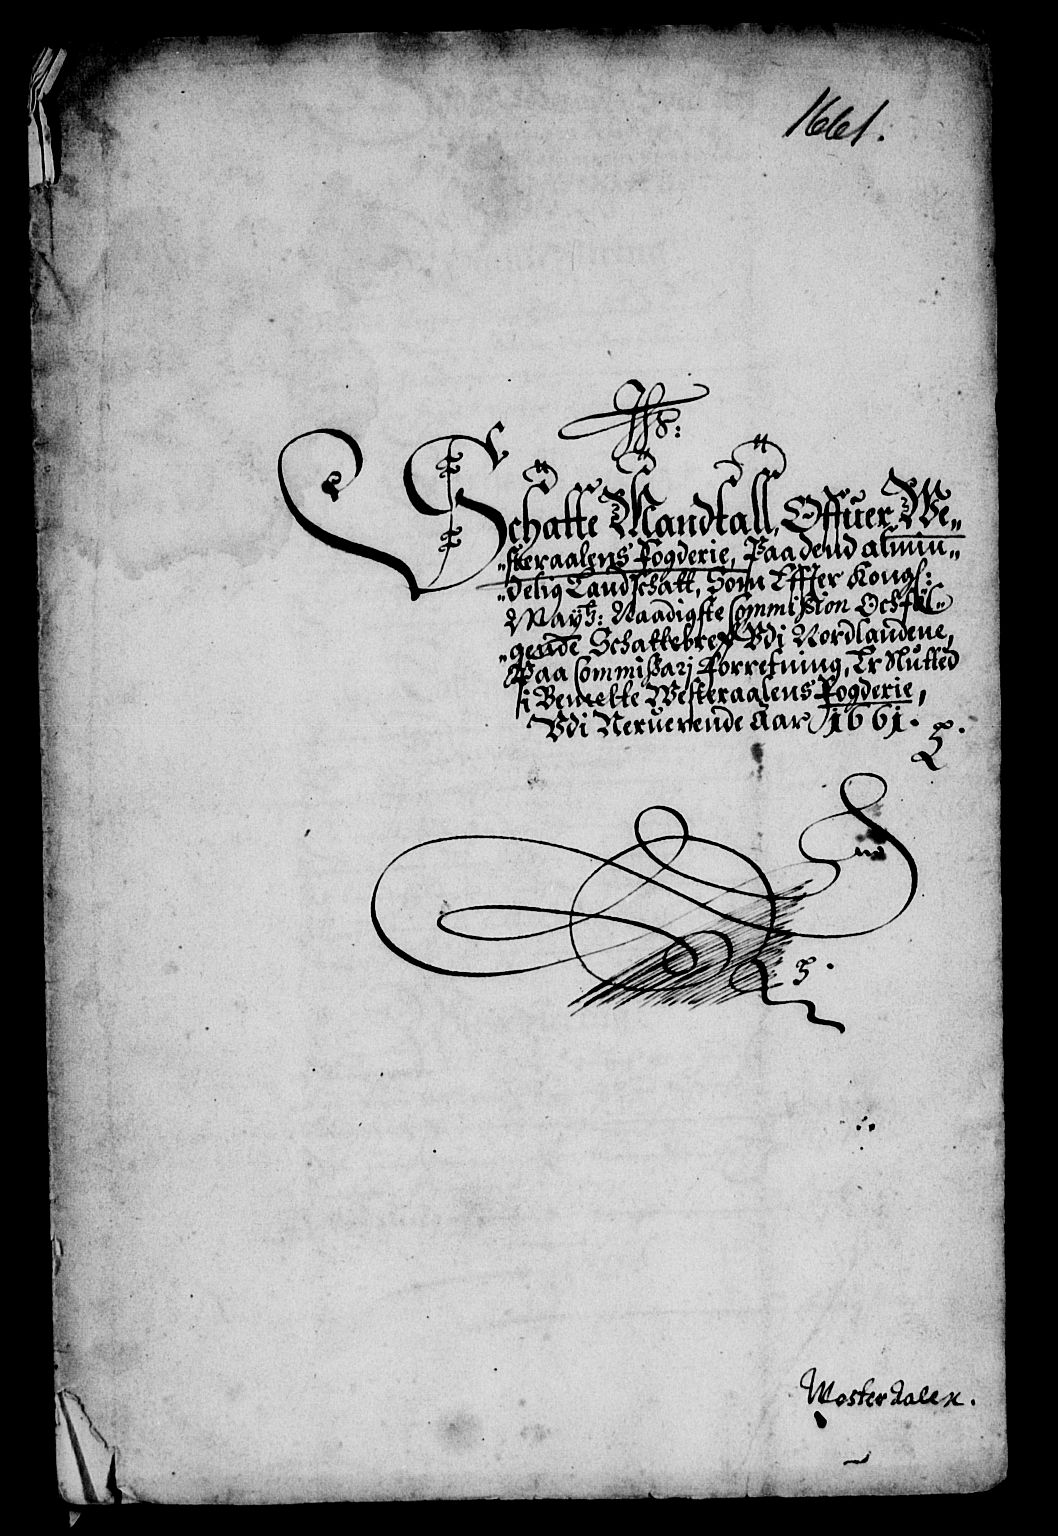 1661.
Schatte Mandtall, Offuer We„
„steraalens Fogderie, Paa dend almin„
„delig Landschatt, Som Effter Kongl:
Maytz: Naadigste Commission Och føl„
„gende Schattebref Vdj Nordlandene,
Paa Commissarj Forretning, Er Slutted
i Bemelte Westeraalens Fogderie,
Vdi Neruerende Aar 1661.
Westerdalen.